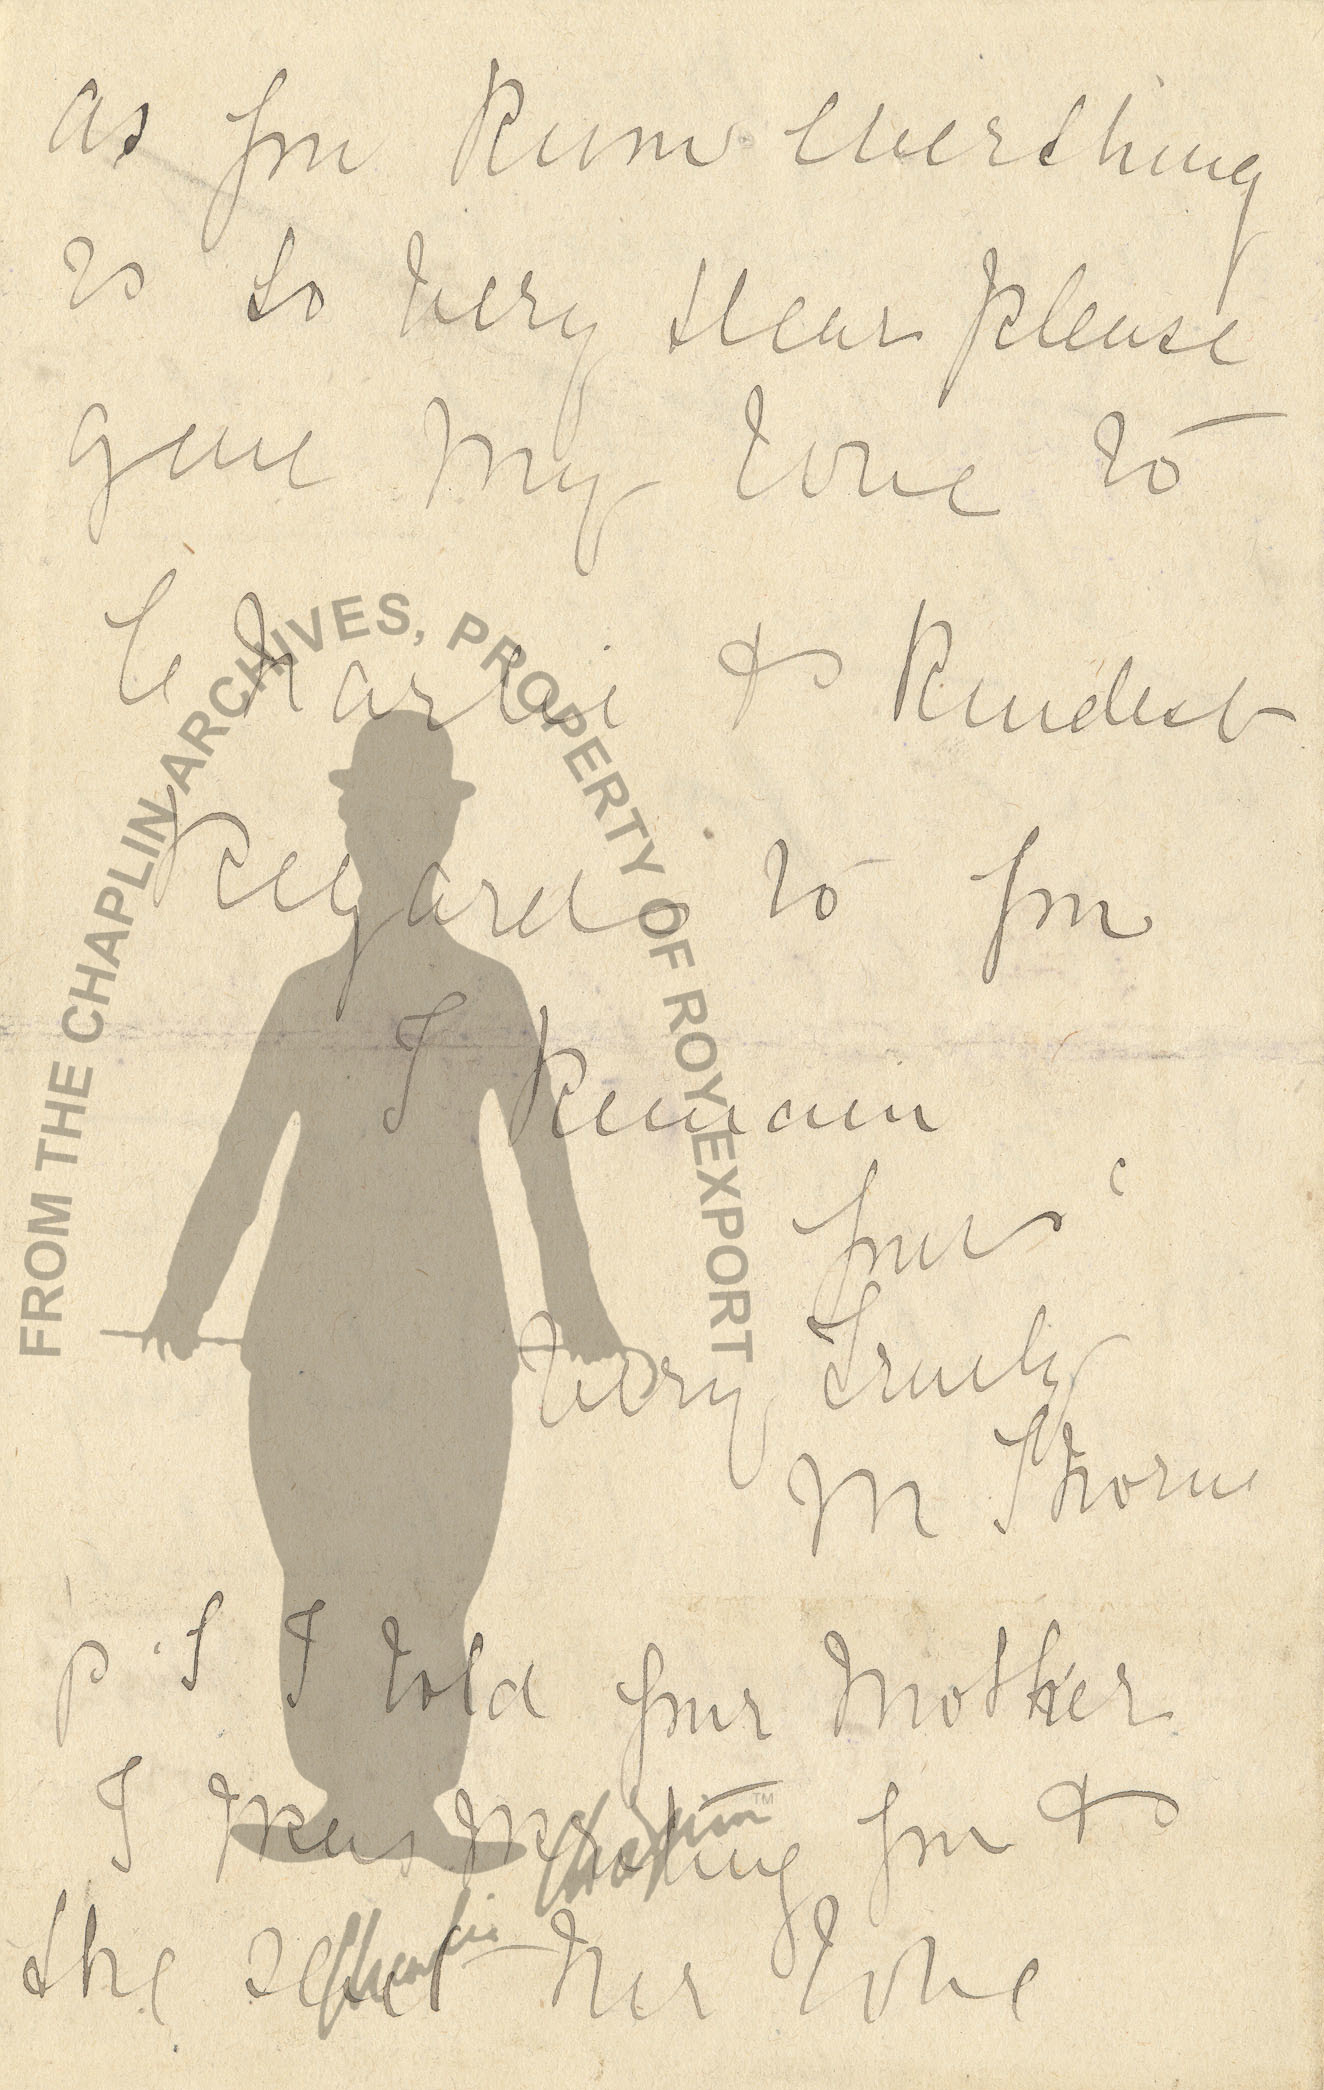 as you know Everthing
is so very dear please
give my love to
Charlie & Kindest
Regards to you
I Remain
yours
Very Truely
M Thorne
p.S I told your Mother
I was writing you &
she sent her love
FROM THE CHAPLIN ARCHIVES, PROPERTY OF ROY EXPORT
Charlie Chaplin™